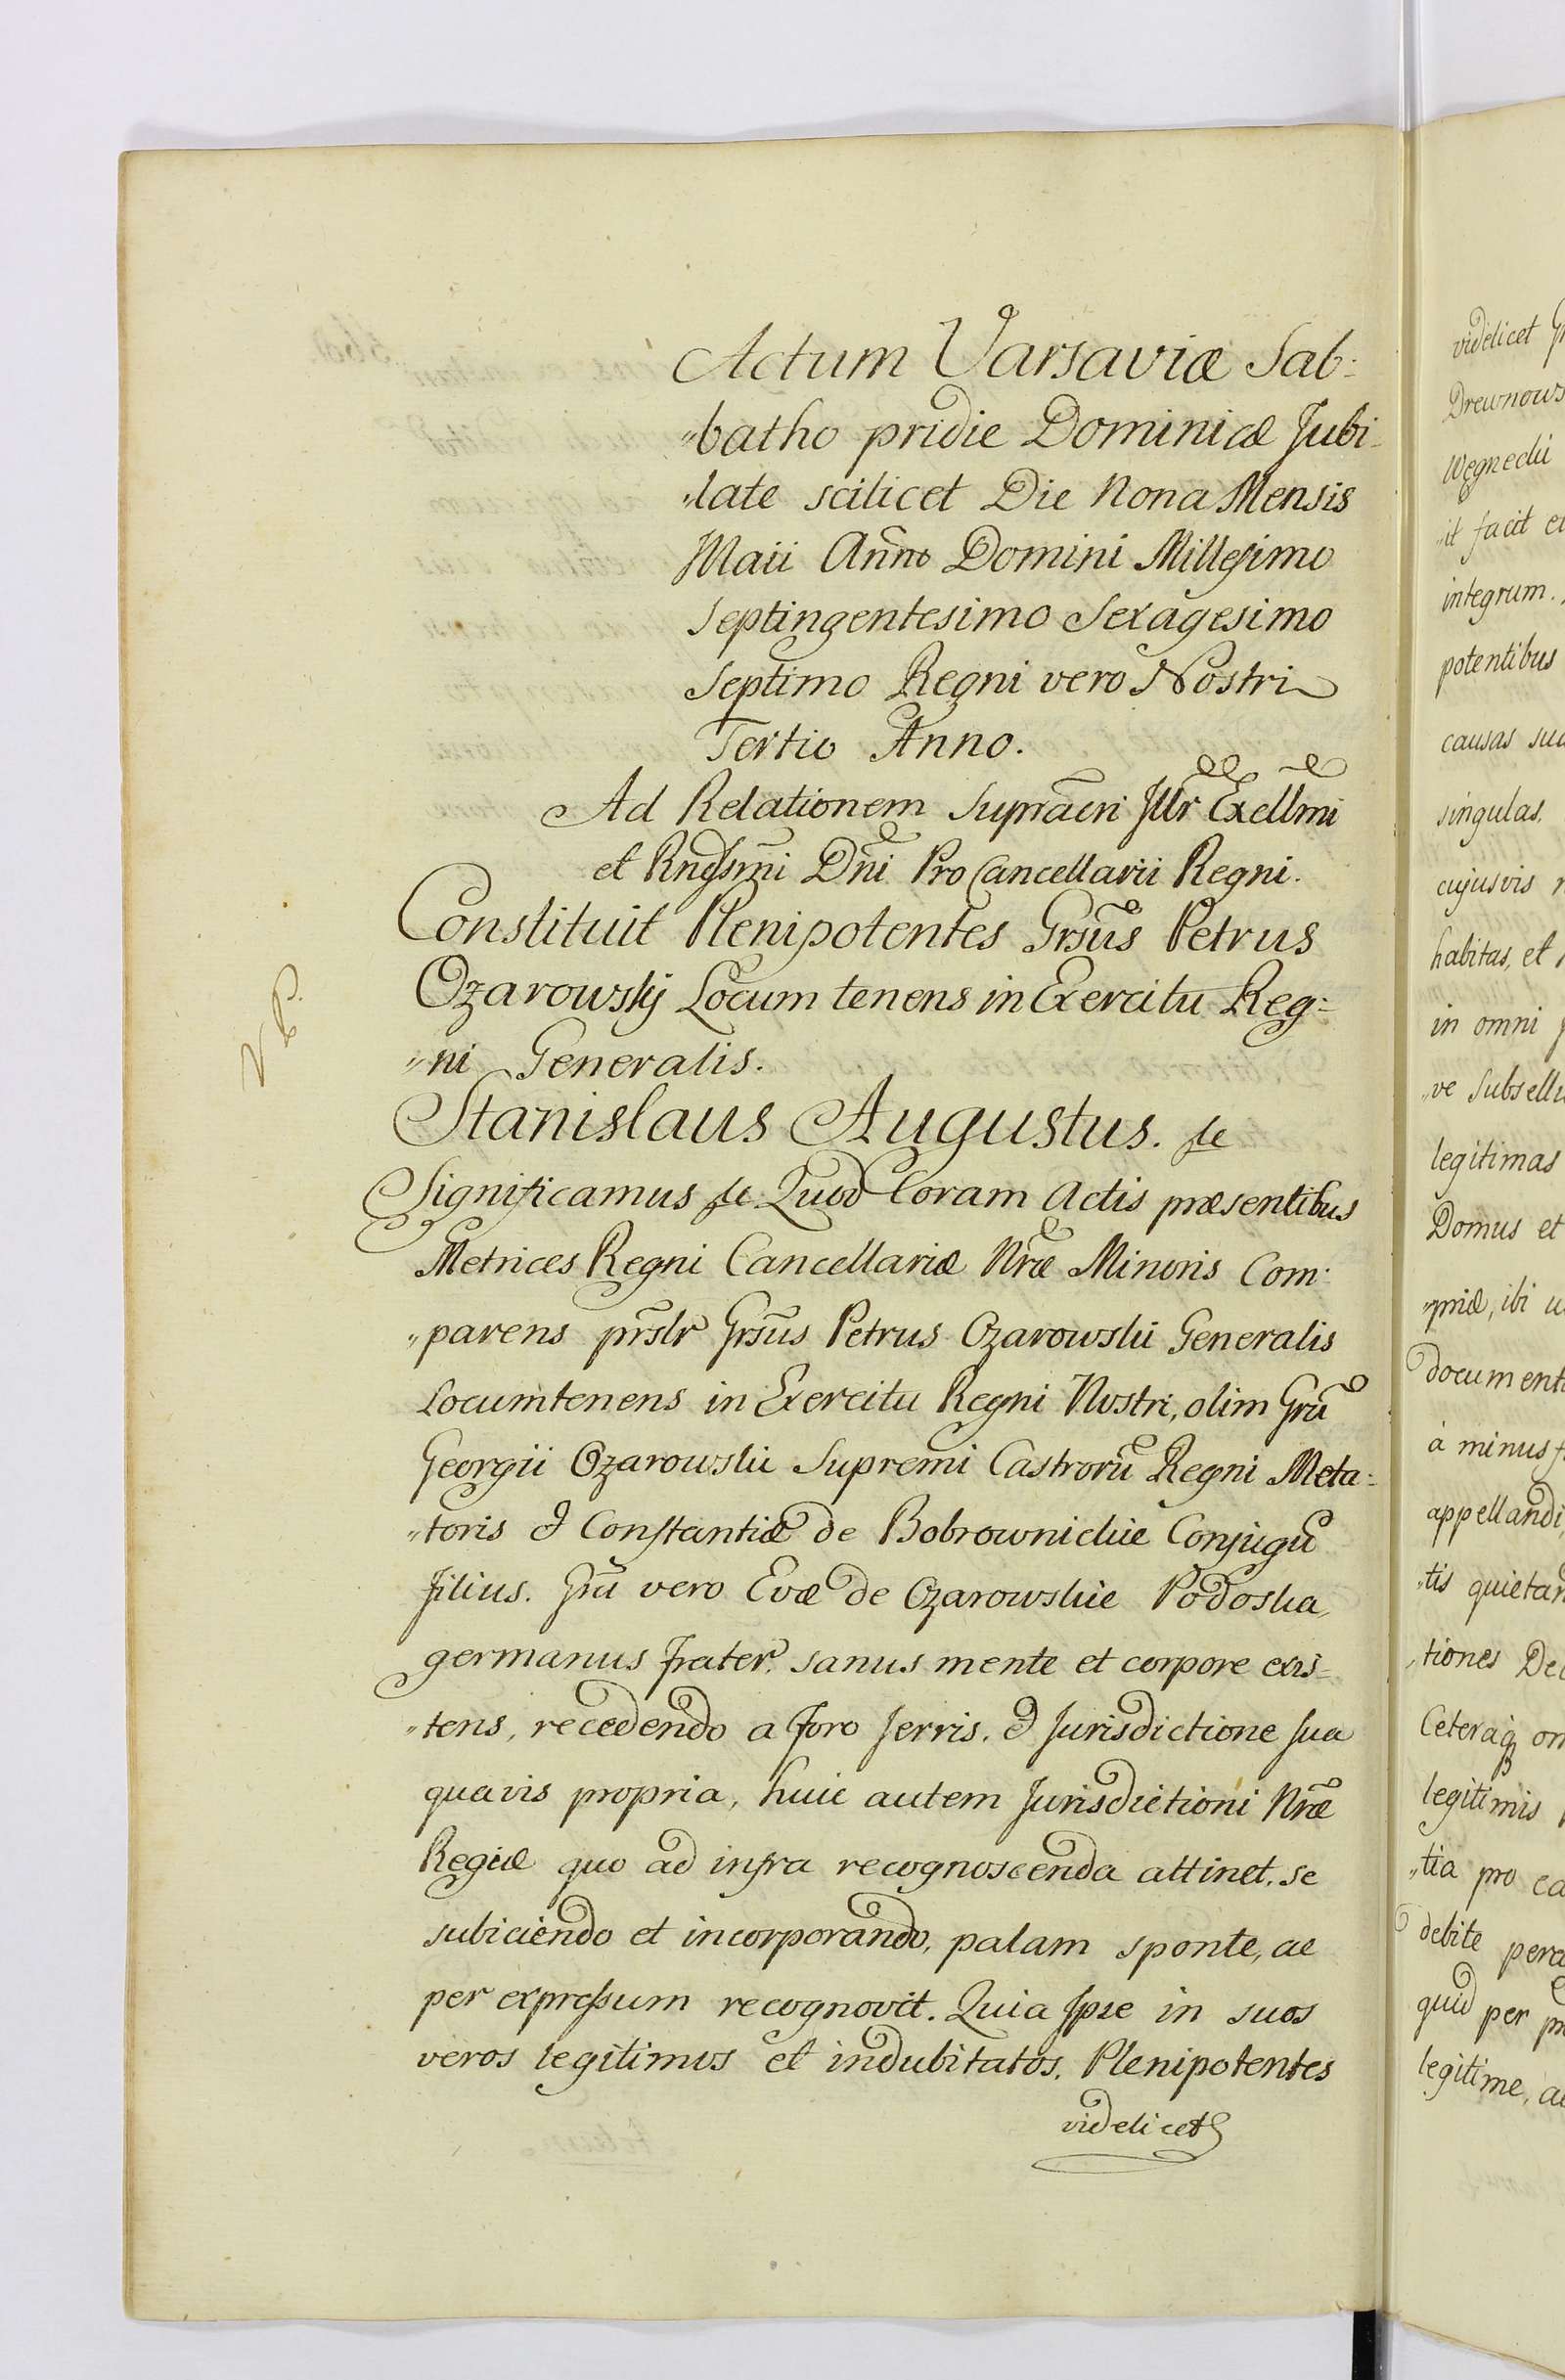 Actum Varsaviæ Sab:
"batho pridie Dominicæ Jubi-
"late scilicet Die Nona Mensis
Maii Anno Domini Millesimo
Septingentesimo Sexagesimo
Septimo Regni vero Nostri
Tertio Anno.
Ad Relationem Supracri Jllr Excllmi
et Rndssmi Dni Pro Cancellarii Regni.
Constituit Plenipotentes Grsus Petrus
Ozarowskj Locum tenens in Exercitu Reg:
"ni Generalis.
Stanislaus Augustus. &c
Significamus &c Quod Coram Actis præsentibus
Metrices Regni Cancellariæ Nræ Minoris Com:
"parens prslr Grsus Petrus Ozarowski Generalis
Locumtenens in Exercitu Regni Nostri, olim Gru
Georgii Ozarowski Supremi Castroru Regni Meta:
"toris & Constantiæ de Bobrownickie Conjugu
filius. Gru vero Evæ de Ozarowskie Podoska,
germanus frater. sanus mente et corpore exis=
"tens, recedendo a foro Terris. & Jurisdictione sua
quavis propria, huic autem Jurisdictioni Nræ
Regiæ quo ad infra recognoscenda attinet. se
subiciendo et incorporando, palam sponte, ac
per expressum recognovit. Quia Ipse in suos
veros legitimos et indubitatos. Plenipotentes
videlicet
videlicet
Drewnows
Węgnecki
"it facit
integrum.
potentibus
causas sua
singulas.
cujusvis
habitas, et
in omni
"ve Subselli
legitimas
Domus et
"miæ, ibi
documenta
à minus
appellandi
"tis quietan
"tiones Dec
Ceteraq om
legitimis
"tia pro ca
debite pera
quid per
legitime, ac